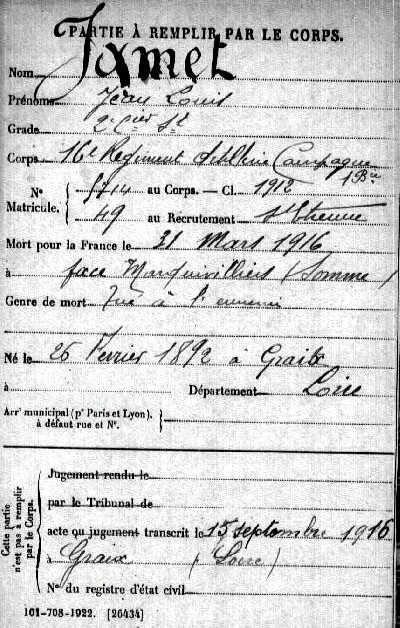 PARTIE À REMPLIR PAR LE CORPS.
Nom Jamet
Prénoms Jean Louis
Grade 2e
Corps 16e Regiment Artillerie Campagne
1 Bie
N° Matricule. { au Corps. — Cl. 1912
49 au Recrutement St Etienne
Mort pour la France le 21 Mars 1916
à face Marquivillers (Somme)
Genre de mort Tué à l'ennemi
Né le 26 Fevrier 1892 à Graix
à Département Loire
Arr' municipal (p' Paris et Lyon),
à défaut rue et N°. }
Cette partie n'est pas à remplir par le Corps.
Jugement rendu le
par le Tribunal de
acte ou jugement transcrit le 15 septembre 1916
à Graix (Loire)
N° du registre d'état civil
101-708-1922. [26434]